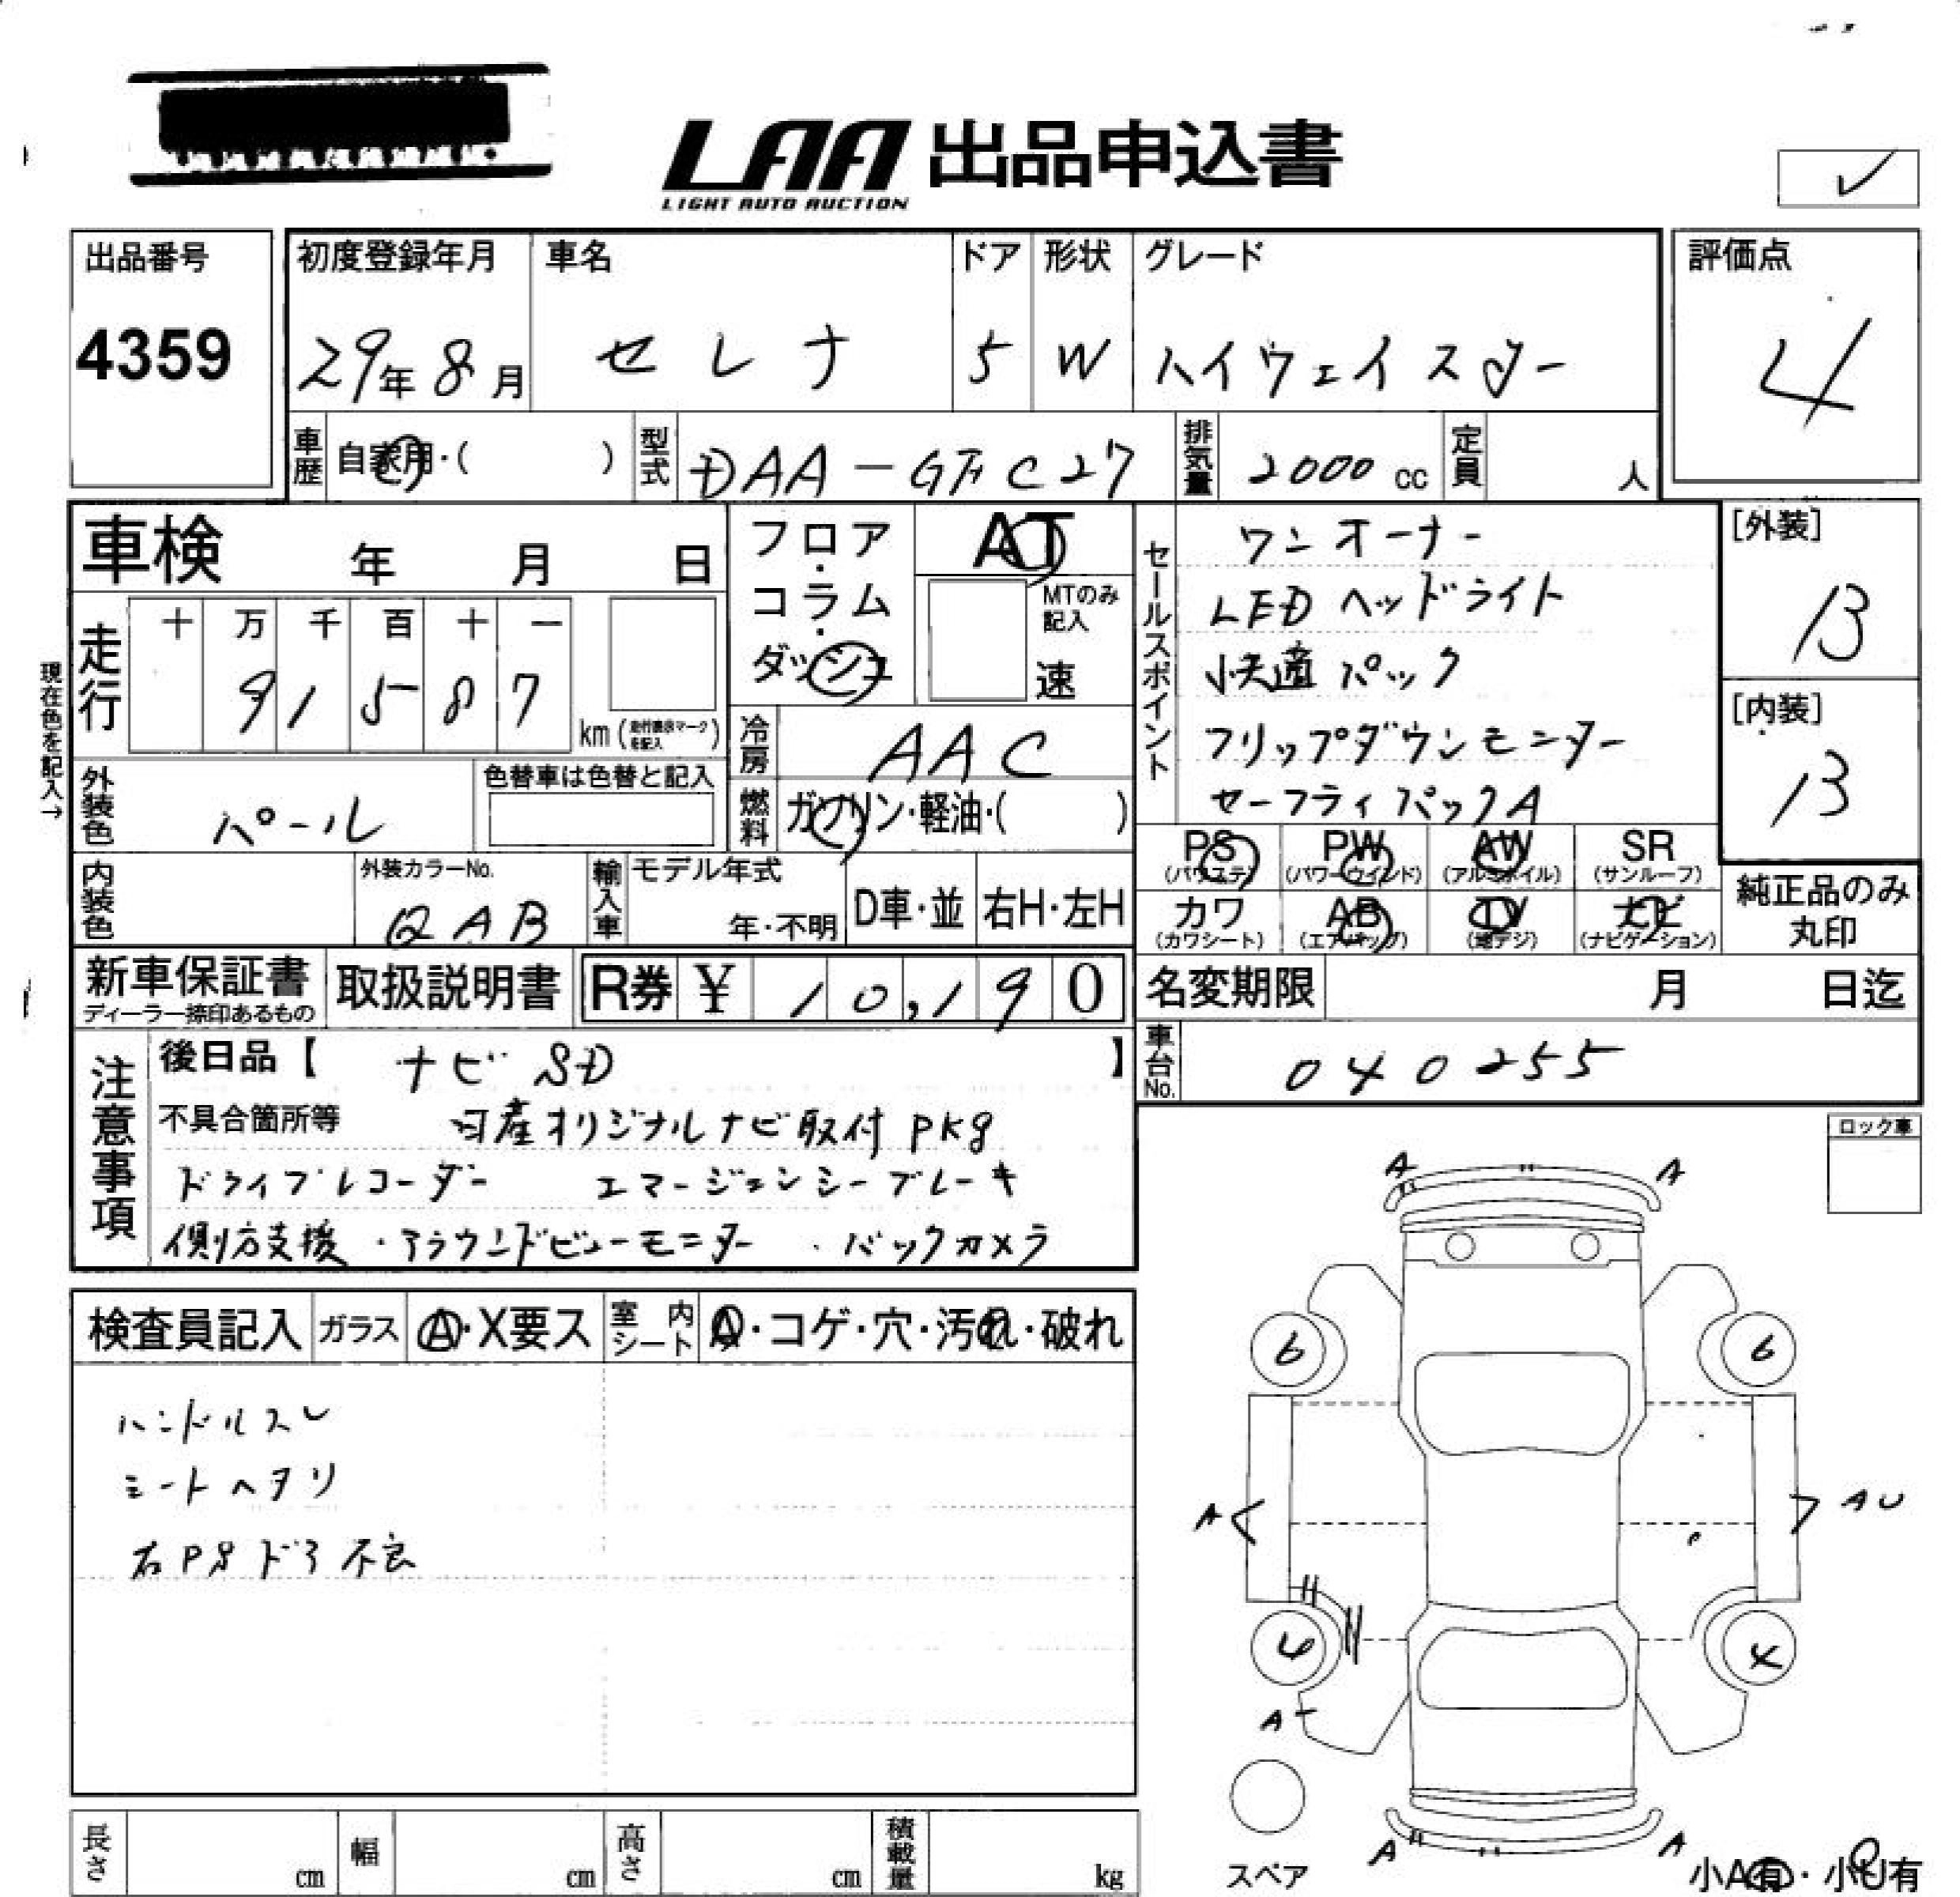 LAA 出品申込書
LIGHT AUTO AUCTION
出品番号
4359
初度登録年月
29年 8月
車名
セレナ
ドア
5
形状
W
グレード
ハイウェイスター
評価点
4
車歴
自家用・( )
型式
DAA-GFC27
排気量
2000 cc
定員
人
車検 年 月 日
走行
十 万 千 百 十 一
9 1 5 8 7
km (走行表示マークを記入)
現在色を記入→
外装色
パール
色替車は色替と記入
内装色
外装カラーNo.
QAB
輸入車
モデル年式
年・不明
D車・並
右H・左H
フロア・
コラム・
ダッシュ
AT
MTのみ
記入
速
冷房
AAC
燃料
ガソリン・軽油・( )
セールスポイント
ワンオーナー
LEDヘッドライト
快適パック
フリップダウンモニター
セーフティパックA
[外装]
13
[内装]
13
PS PW AW SR
(パワステ) (パワーウィンド) (アルミホイル) (サンルーフ)
カワ AB TV ナビ
(カワシート) (エアバッグ) (地デジ) (ナビゲーション)
純正品のみ
丸印
新車保証書
ディーラー捺印あるもの
取扱説明書
R券 ¥ 10,190
名変期限 月 日迄
車台No.
040255
注意事項
後日品【 ナビSD 】
不具合箇所等 日産オリジナルナビ取付PKg
ドライブレコーダー エマージェンシーブレーキ
側方支援・アラウンドビューモニター・バックカメラ
ロック車
検査員記入
ガラス
A・X要ス
室内シート
A・コゲ・穴・汚れ・破れ
ハンドルスレ
シートヘタリ
右PSドア不良
A A
6 6
A AU
6 4
A
A A
スペア
小A有・小U有
長さ cm
幅 cm
高さ cm
積載量 kg